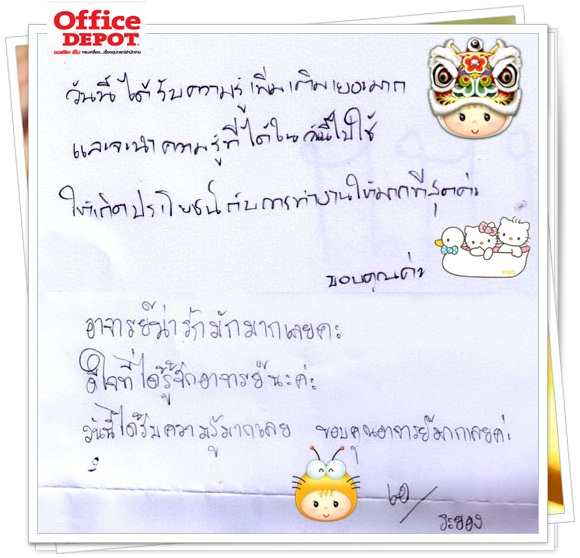 Office
DEPOT
วันนี้ได้รับความรู้เพิ่มเติมเยอะมาก
และจะนำความรู้ที่ได้ในวันนี้ไปใช้
ให้เกิดประโยชน์กับการทำงานให้มากที่สุดค่ะ
ขอบคุณค่ะ
อาจารย์น่ารักมักมากเลยคะ
ดีใจที่ได้รู้จักอาจารย์นะค่ะ
วันนี้ได้รับความรู้มากเลย ขอบคุณอาจารย์มากเลยค่ะ
ระยอง